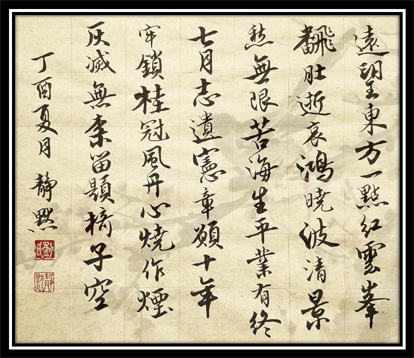 遠望東方一點紅雲峯
飜肚逝哀鴻曉波清景
愁無限苦海生平業有終
七月志遺憲章願十年
牢鎖桂冠風丹心燒作煙
灰滅無柰留題撛子空
丁酉夏月 靜默